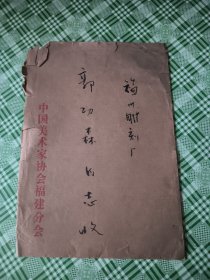 福州雕刻厂
郭功森同志收
中国美术家协会福建分会